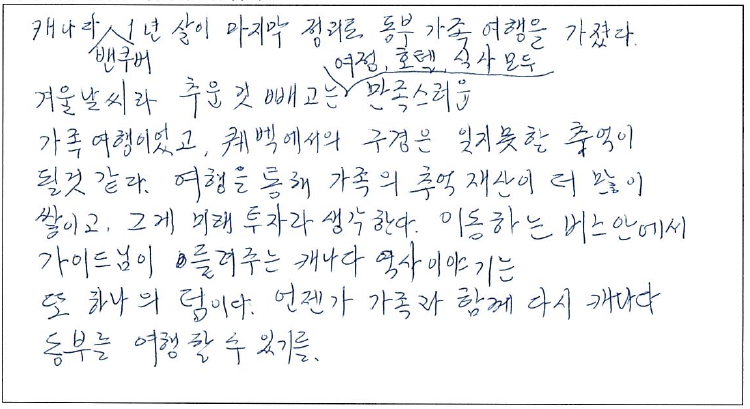 캐나다 밴쿠버 1년 살이 마지막 정리로 동부 가족 여행을 가졌다.
겨울날씨라 추운 것 빼고는 여정, 호텔, 식사 모두 만족스러운
가족여행이었고, 퀘벡에서의 구경은 잊지못할 추억이
될것 같다. 여행을 통해 가족의 추억 재산이 더 많이
쌓이고, 그게 미래 투자라 생각한다. 이동하는 버스안에서
가이드님이 들려주는 캐나다 역사이야기는
또 하나의 덤이다. 언젠가 가족과 함께 다시 캐나다
동부를 여행 할 수 있기를.